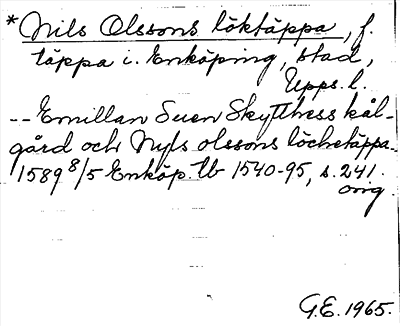 *Nils Olssons löktäppa, f.
täppa i. Enköping, stad,
Upps. l.
-- Emillan Suen Skytthess kål-
gård och Nyls olssons löchetäppa.
1589 8/5 Enköp. tb 1540-95, s. 241.
orig.
G.E. 1965.